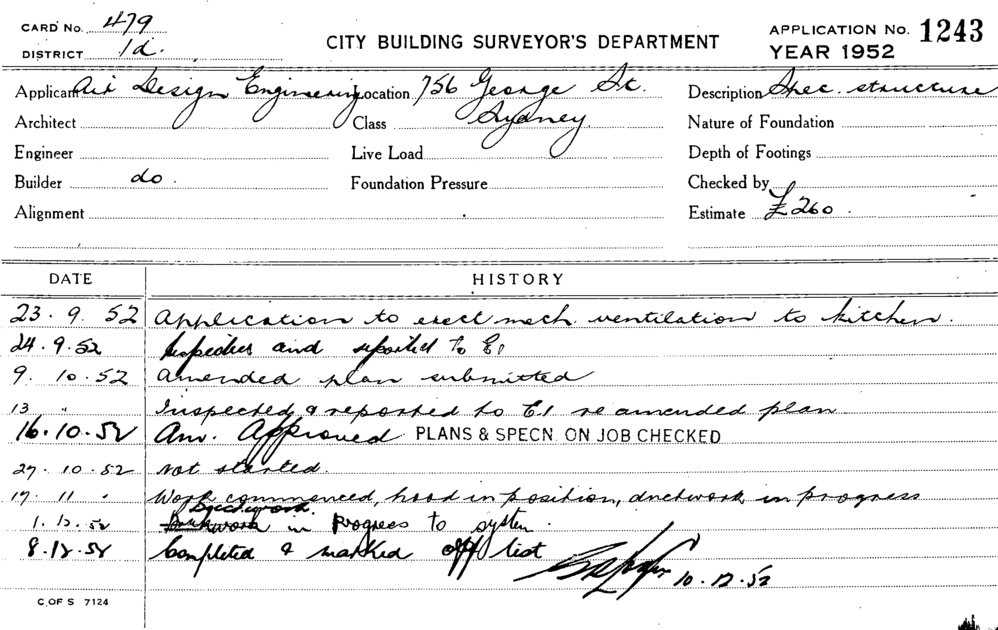 CARD No. 479
DISTRICT 1d.
CITY BUILDING SURVEYOR'S DEPARTMENT
APPLICATION No. 1243
YEAR 1952
Applicant Air Design Engineering Location 756 George St. Description Spec. structure
Architect Class Sydney. Nature of Foundation
Engineer Live Load Depth of Footings
Builder do. Foundation Pressure Checked by
Alignment Estimate £260.
DATE HISTORY
23. 9. 52 Application to erect mech. ventilation to kitchen.
24. 9. 52 Inspected and reported to E1
9. 10. 52 Amended plan submitted
13 " Inspected & reported to E1 re amended plan
16. 10. 52 Am. Approved PLANS & SPECN. ON JOB CHECKED
27. 10. 52 Not started.
17. 11 " Work commenced, hood in position, ductwork in progress
1. 12. 52 Ductwork in progress to system.
8. 12. 52 Completed & marked off list
10. 12. 52
C. OF S 7124